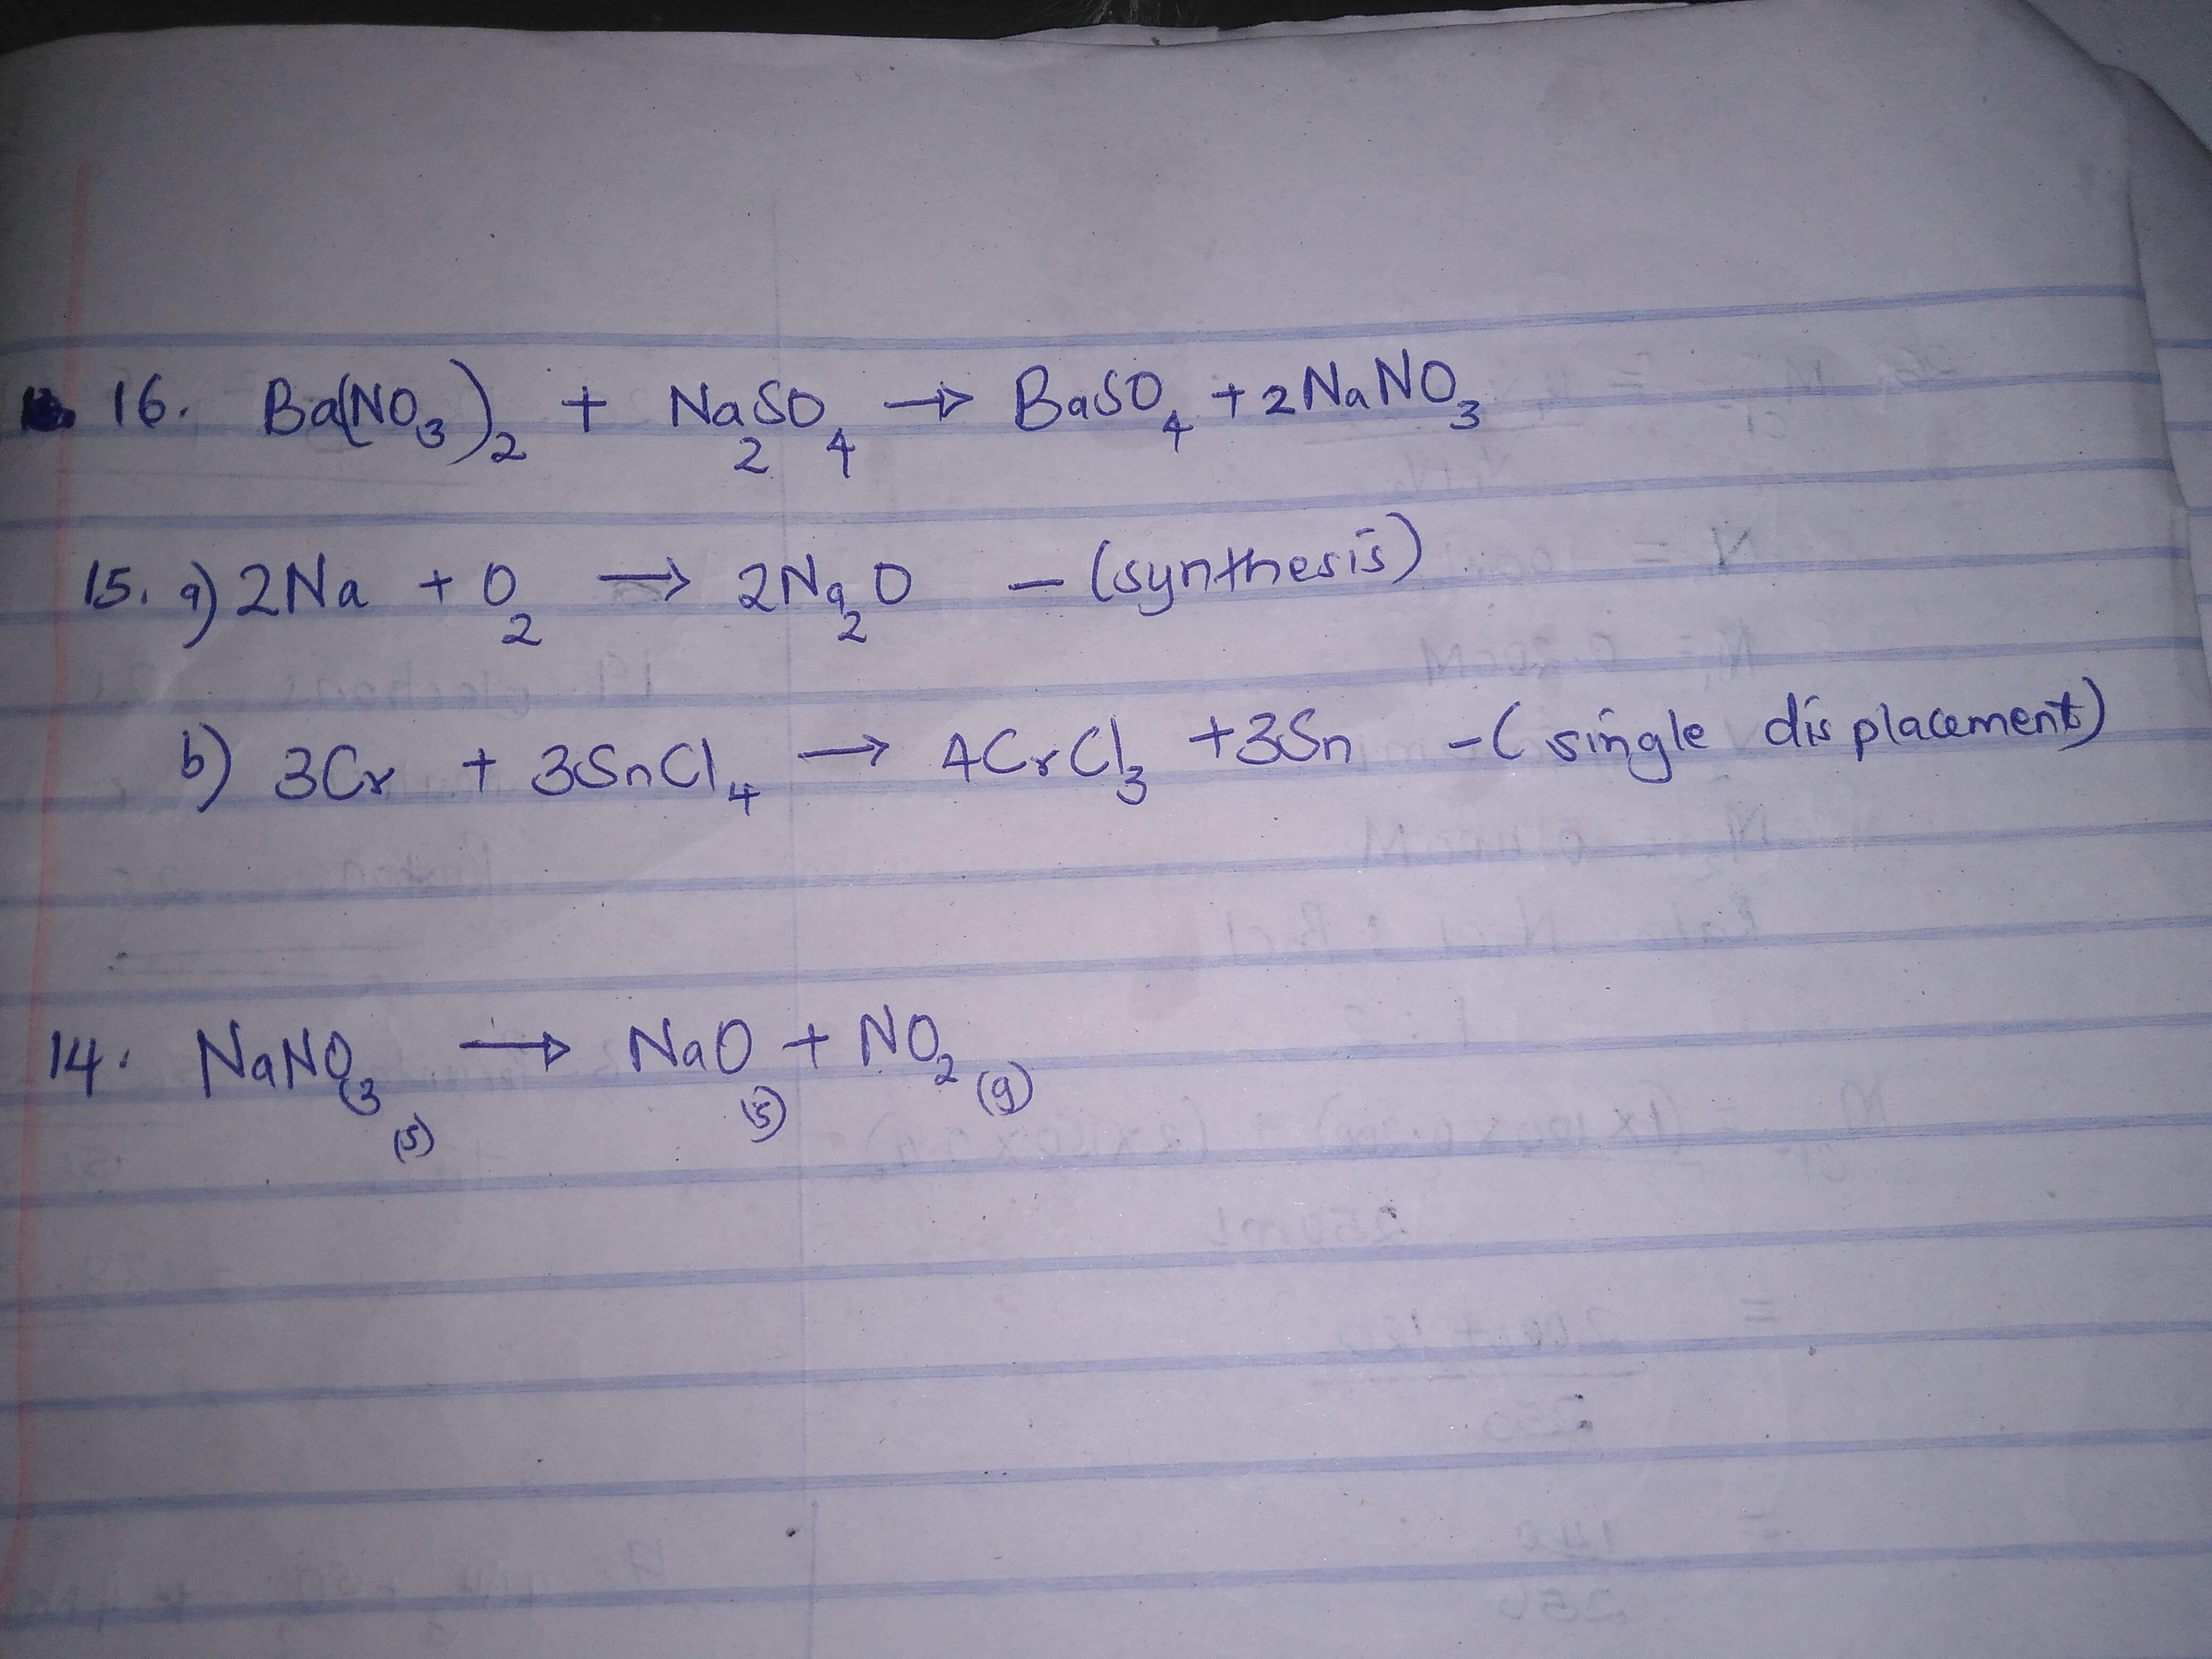 16. Ba(NO₃)₂ + Na₂SO₄ → BaSO₄ + 2NaNO₃
15. a) 2Na + O₂ → 2Na₂O – (synthesis)
b) 3Cr + 3SnCl₄ → 4CrCl₃ + 3Sn – (single displacement)
14. NaNO₃(s) → NaO(s) + NO₂(g)